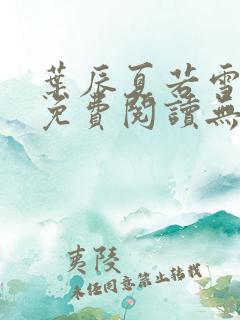 葉辰夏若雪
免費閱讀無
夷陵
未经同意禁止转载